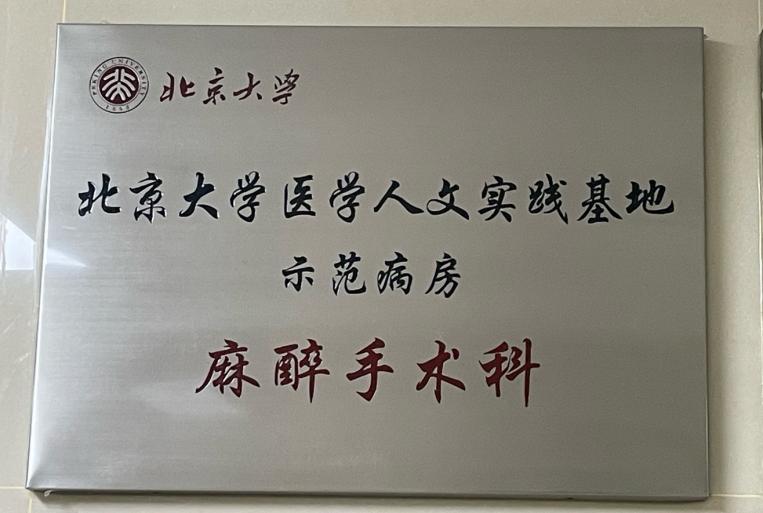 PEKING UNIVERSITY 1898
北京大学
北京大学医学人文实践基地
示范病房
麻醉手术科